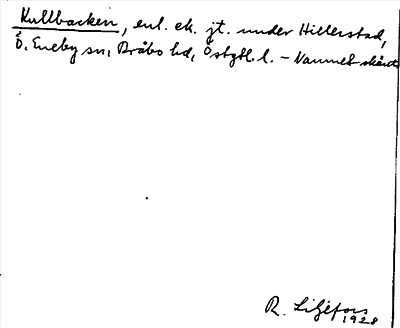 Kullbacken, enl. ek. jt. under Hillerstad,
Ö. Eneby sn, Bråbo hd, Östgtl. l. – Namnet
R. Liljefors
1928